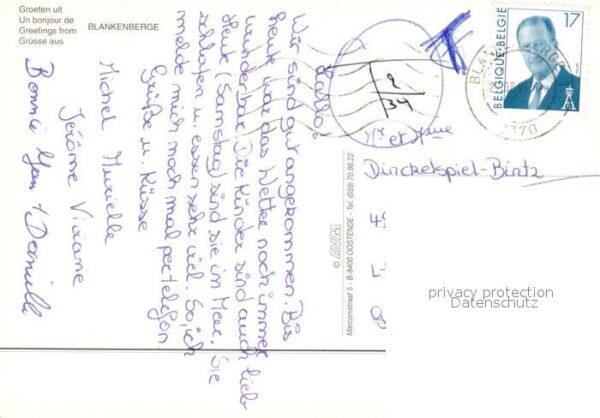 Groeten uit
Un bonjour de
Greetings from
Grüsse aus
BLANKENBERGE
Hallo!
Wir sind gut angekommen. Bis
heute war das Wetter noch immer
wunderbar. Die Kinder sind auch lieb
Heute (Samstag) sind sie im Meer. Sie
schlafen u. essen sehr viel. So, ich
melde mich noch mal per telefon
Grüße u. Küsse
Michel Murielle
Jérôme Viviane
Bonnie
© 
Marconistraat 5 - B-8400 OOSTENDE - Tel. (059) 70.86.22
T
2
34
17
BELGIQUE-BELGIË
BLANKENBERGE
8370
Mr et Mme
Dinckelspiel-Bintz
privacy protection
Datenschutz